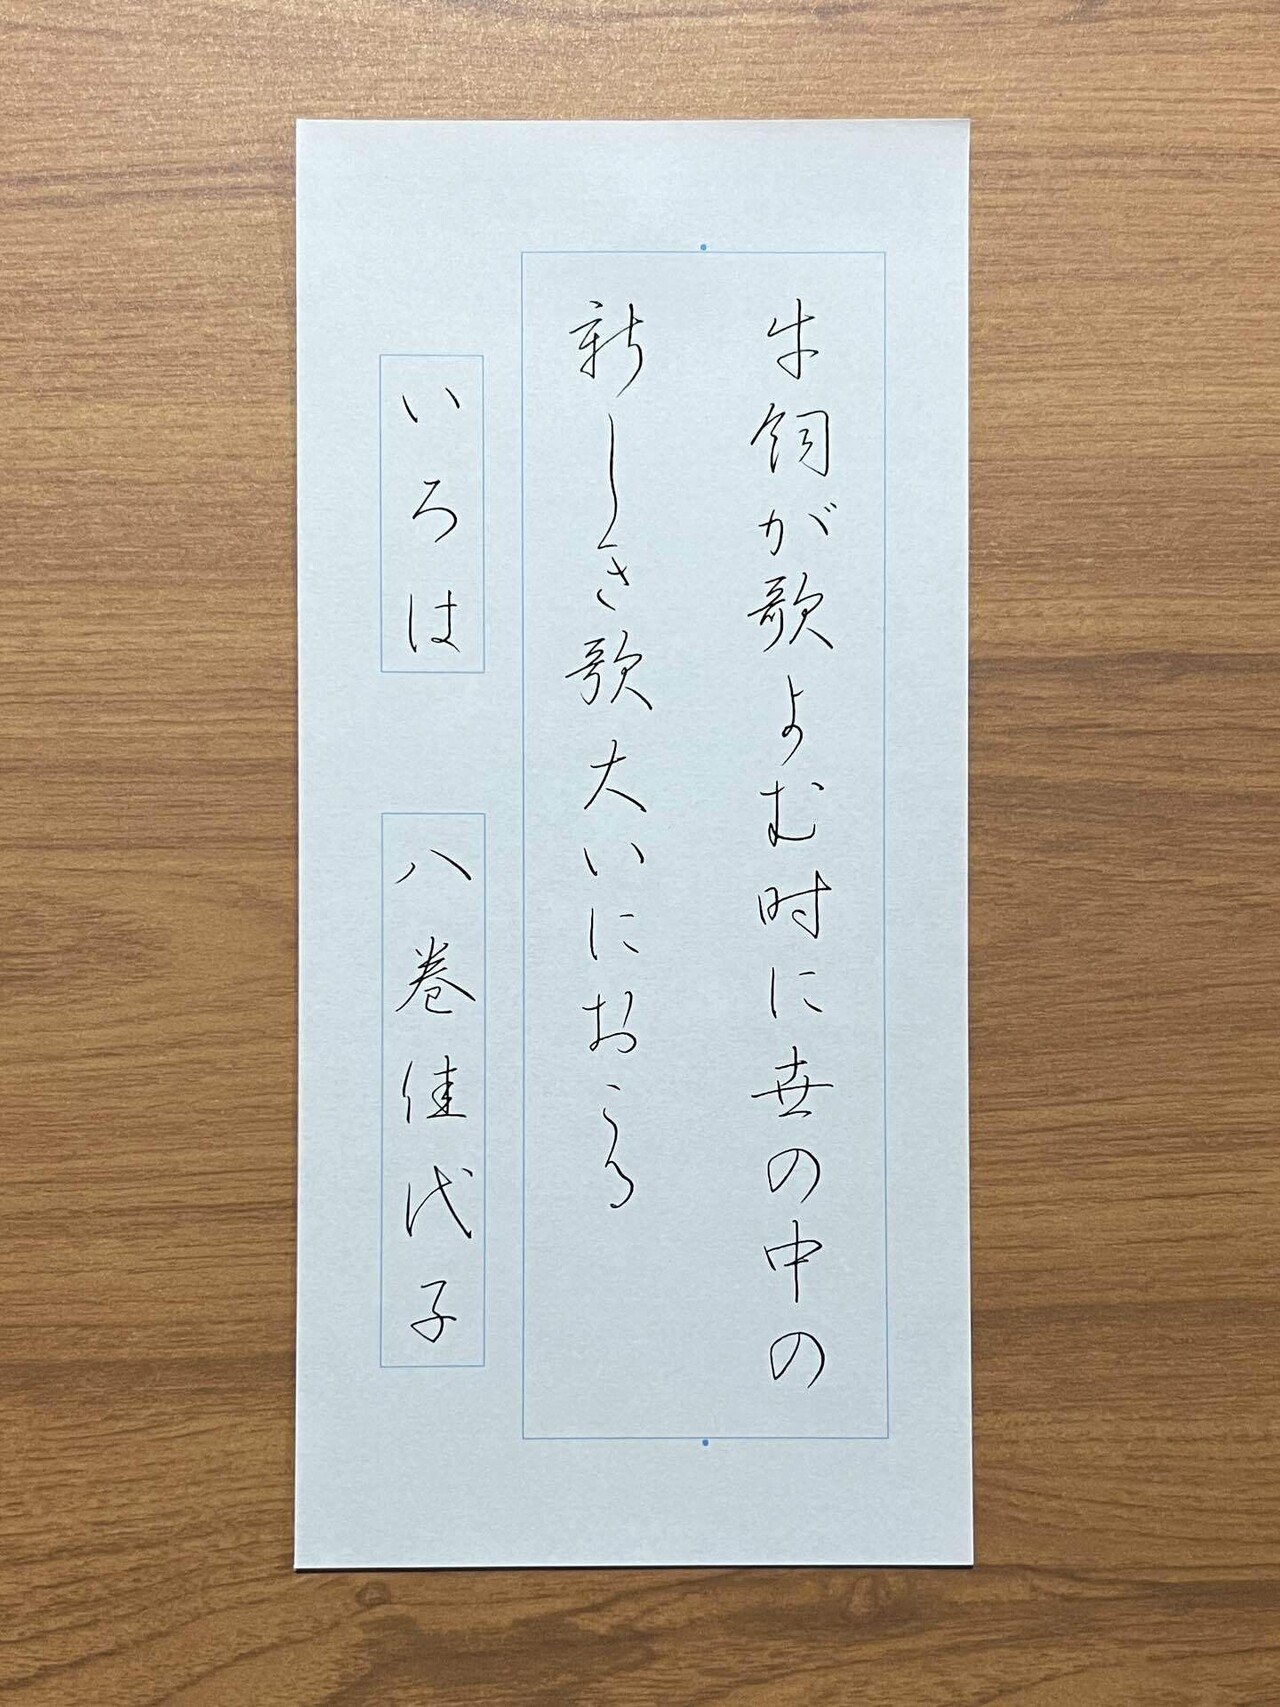 牛飼が歌よむ時に世の中の
新しき歌大いにおこる
いろは
八巻佳代子